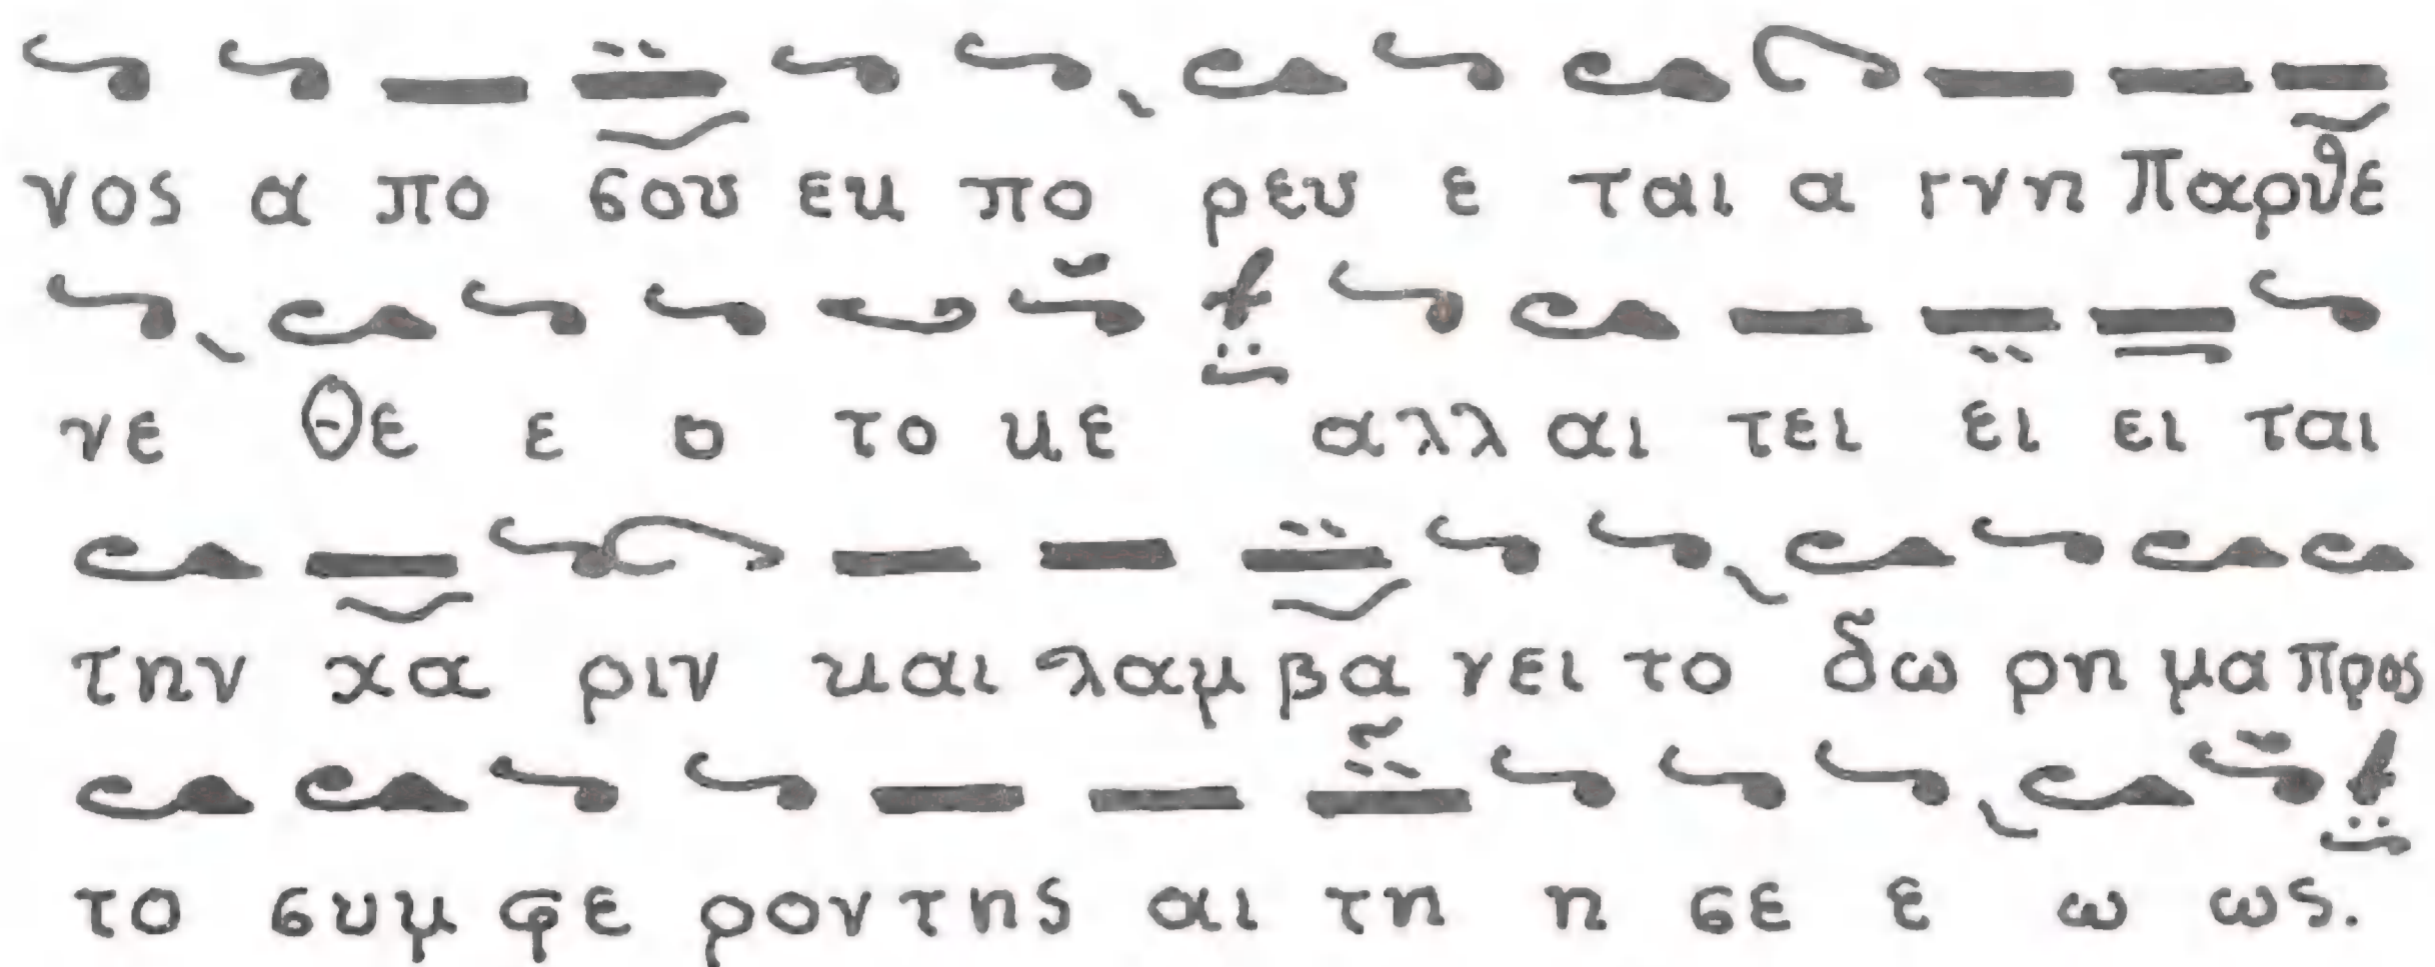 νος α πο σου εκ πο ρευ ε ται α γνη Παρθε
νε Θε ε ο το κε αλλ αι τει ει ει ται
την χα ριν και λαμ βα νει το δω ρη μα προς
το συμ φε ρον της αι τη η σε ε ω ως.